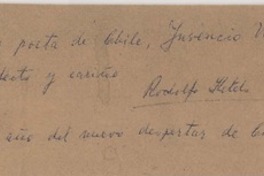 poeta de Chile, Juvencio V
y cariño
Rodolfo
año del nuevo despertar de C